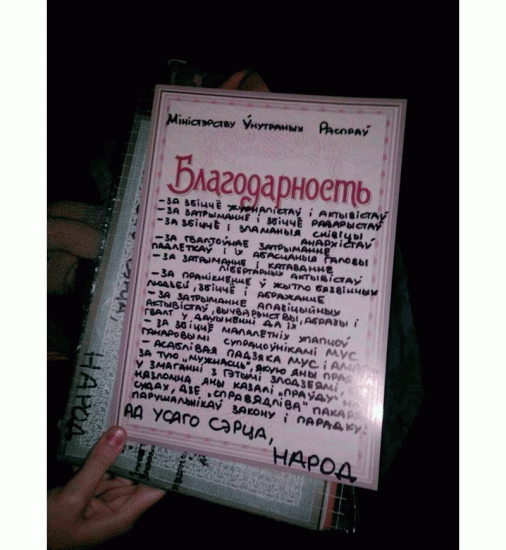 Міністэрству Ўнутраных Распраў
Благодарность
- ЗА ЗБІЦЦЁ ЖУРНАЛІСТАЎ І АКТЫВІСТАЎ
- ЗА ЗАТРЫМАННЕ І ЗБІЦЦЁ РАДАРЫСТАЎ
- ЗА ЗБІЦЦЁ І ЗЛАМАНЫЯ СКІВІЦЫ
АНАРХІСТАЎ
- ЗА ГВАЛТОЎНАЕ ЗАТРЫМАННЕ
ПАДЛЕТКАЎ І ІХ АБАСЦАНЫЯ ГАЛОВЫ
- ЗА ЗАТРЫМАННЕ І КАТАВАННЕ
ЛІБЕРТАРНЫХ АКТЫВІСТАЎ
- ЗА ПРАНІКНЕННЕ Ў ЖЫТЛО БЯЗВІННЫХ
ЛЮДЗЕЙ, ЗБІЦЦЁ І АБРАЖАННЕ
- ЗА ЗАТРЫМАННЕ АПАЗІЦЫЙНЫХ
АКТЫВІСТАЎ, ВЫЧВАРЭНСТВЫ, АБРАЗЫ І
ГВАЛТ У ДАЧЫНЕННІ ДА ІХ
- ЗА ЗБІЦЦЁ МАЛАЛЕТНІХ ХЛАПЦОЎ
ГАНАРОВЫМІ СУПРАЦОЎНІКАМІ МУС
- АСАБЛІВАЯ ПАДЗЯКА МУС І
ЗА ТУЮ „МУЖНАСЦЬ", ЯКУЮ ЯНЫ
У ЗМАГАННІ З ГЭТЫМІ ЗЛОДЗЕЯМІ,
ЯНЫ КАЗАЛІ „ПРАЎДУ" НА
СУДАХ, ДЗЕ „СПРАВЯДЛІВА"
ПАРУШАЛЬНІКАЎ ЗАКОНУ І ПАРАДКУ!
АД УСЯГО СЭРЦА,
НАРОД
НАРОД